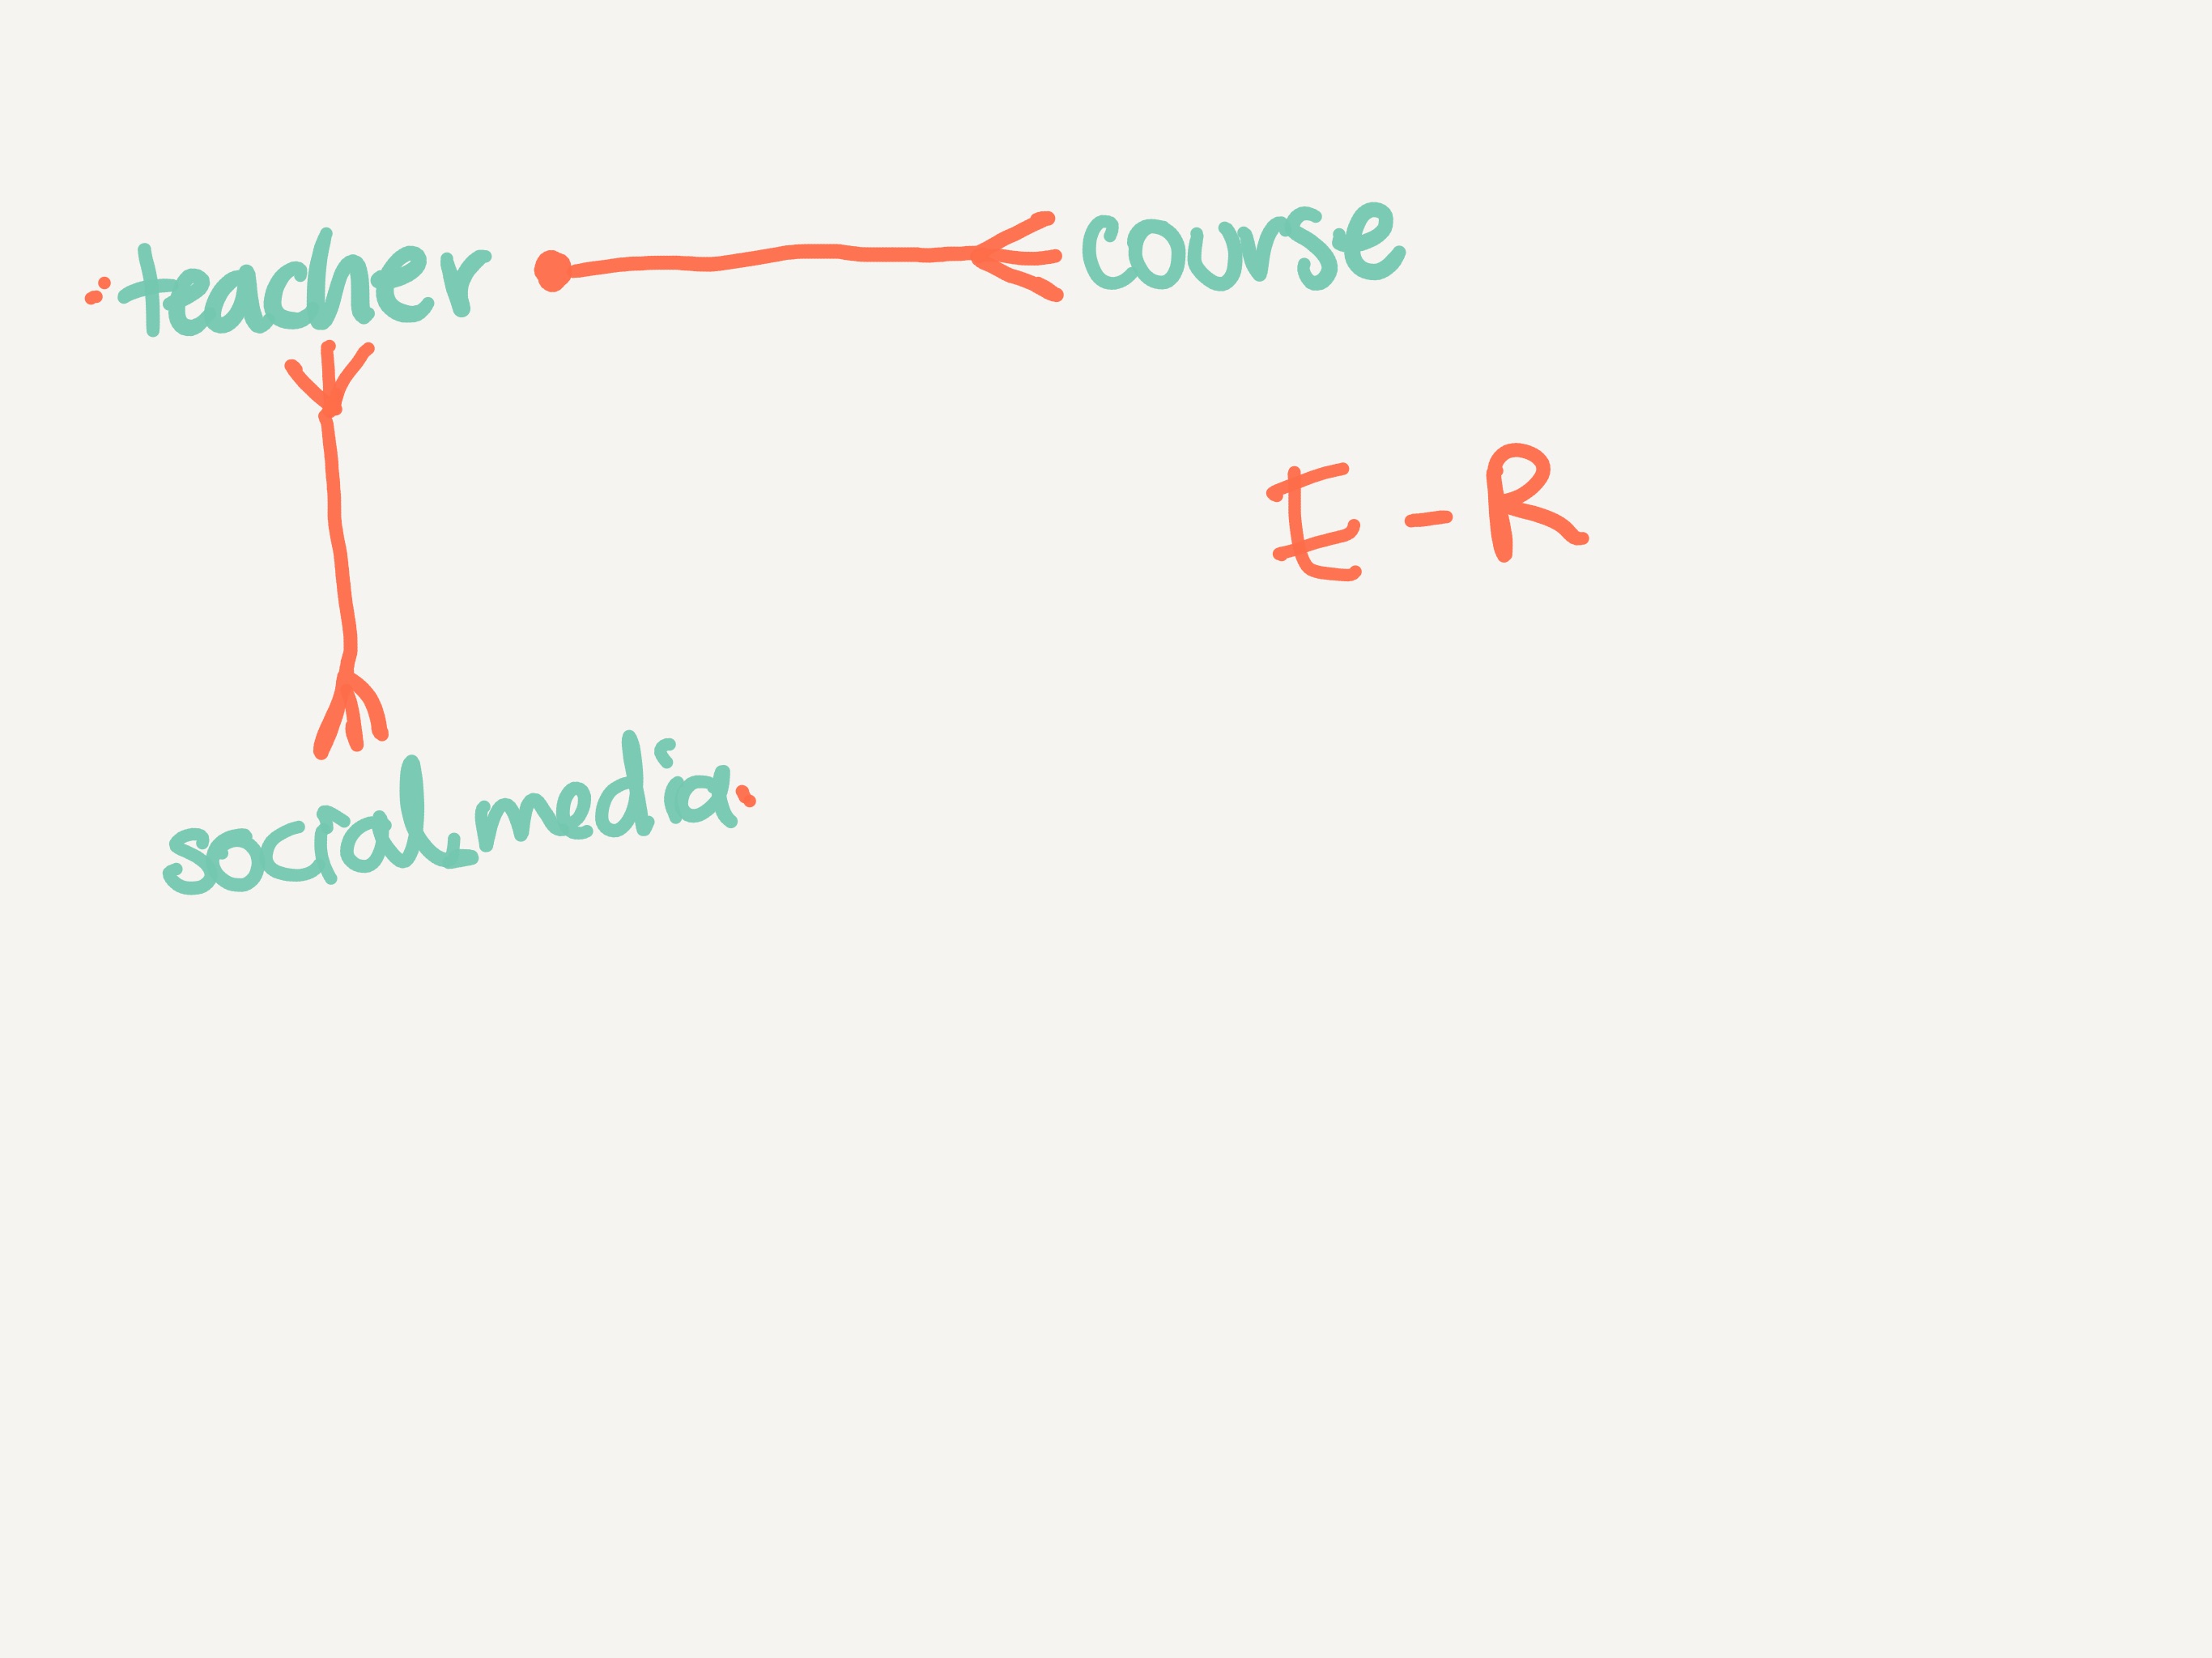 teacher course
E-R
social_media